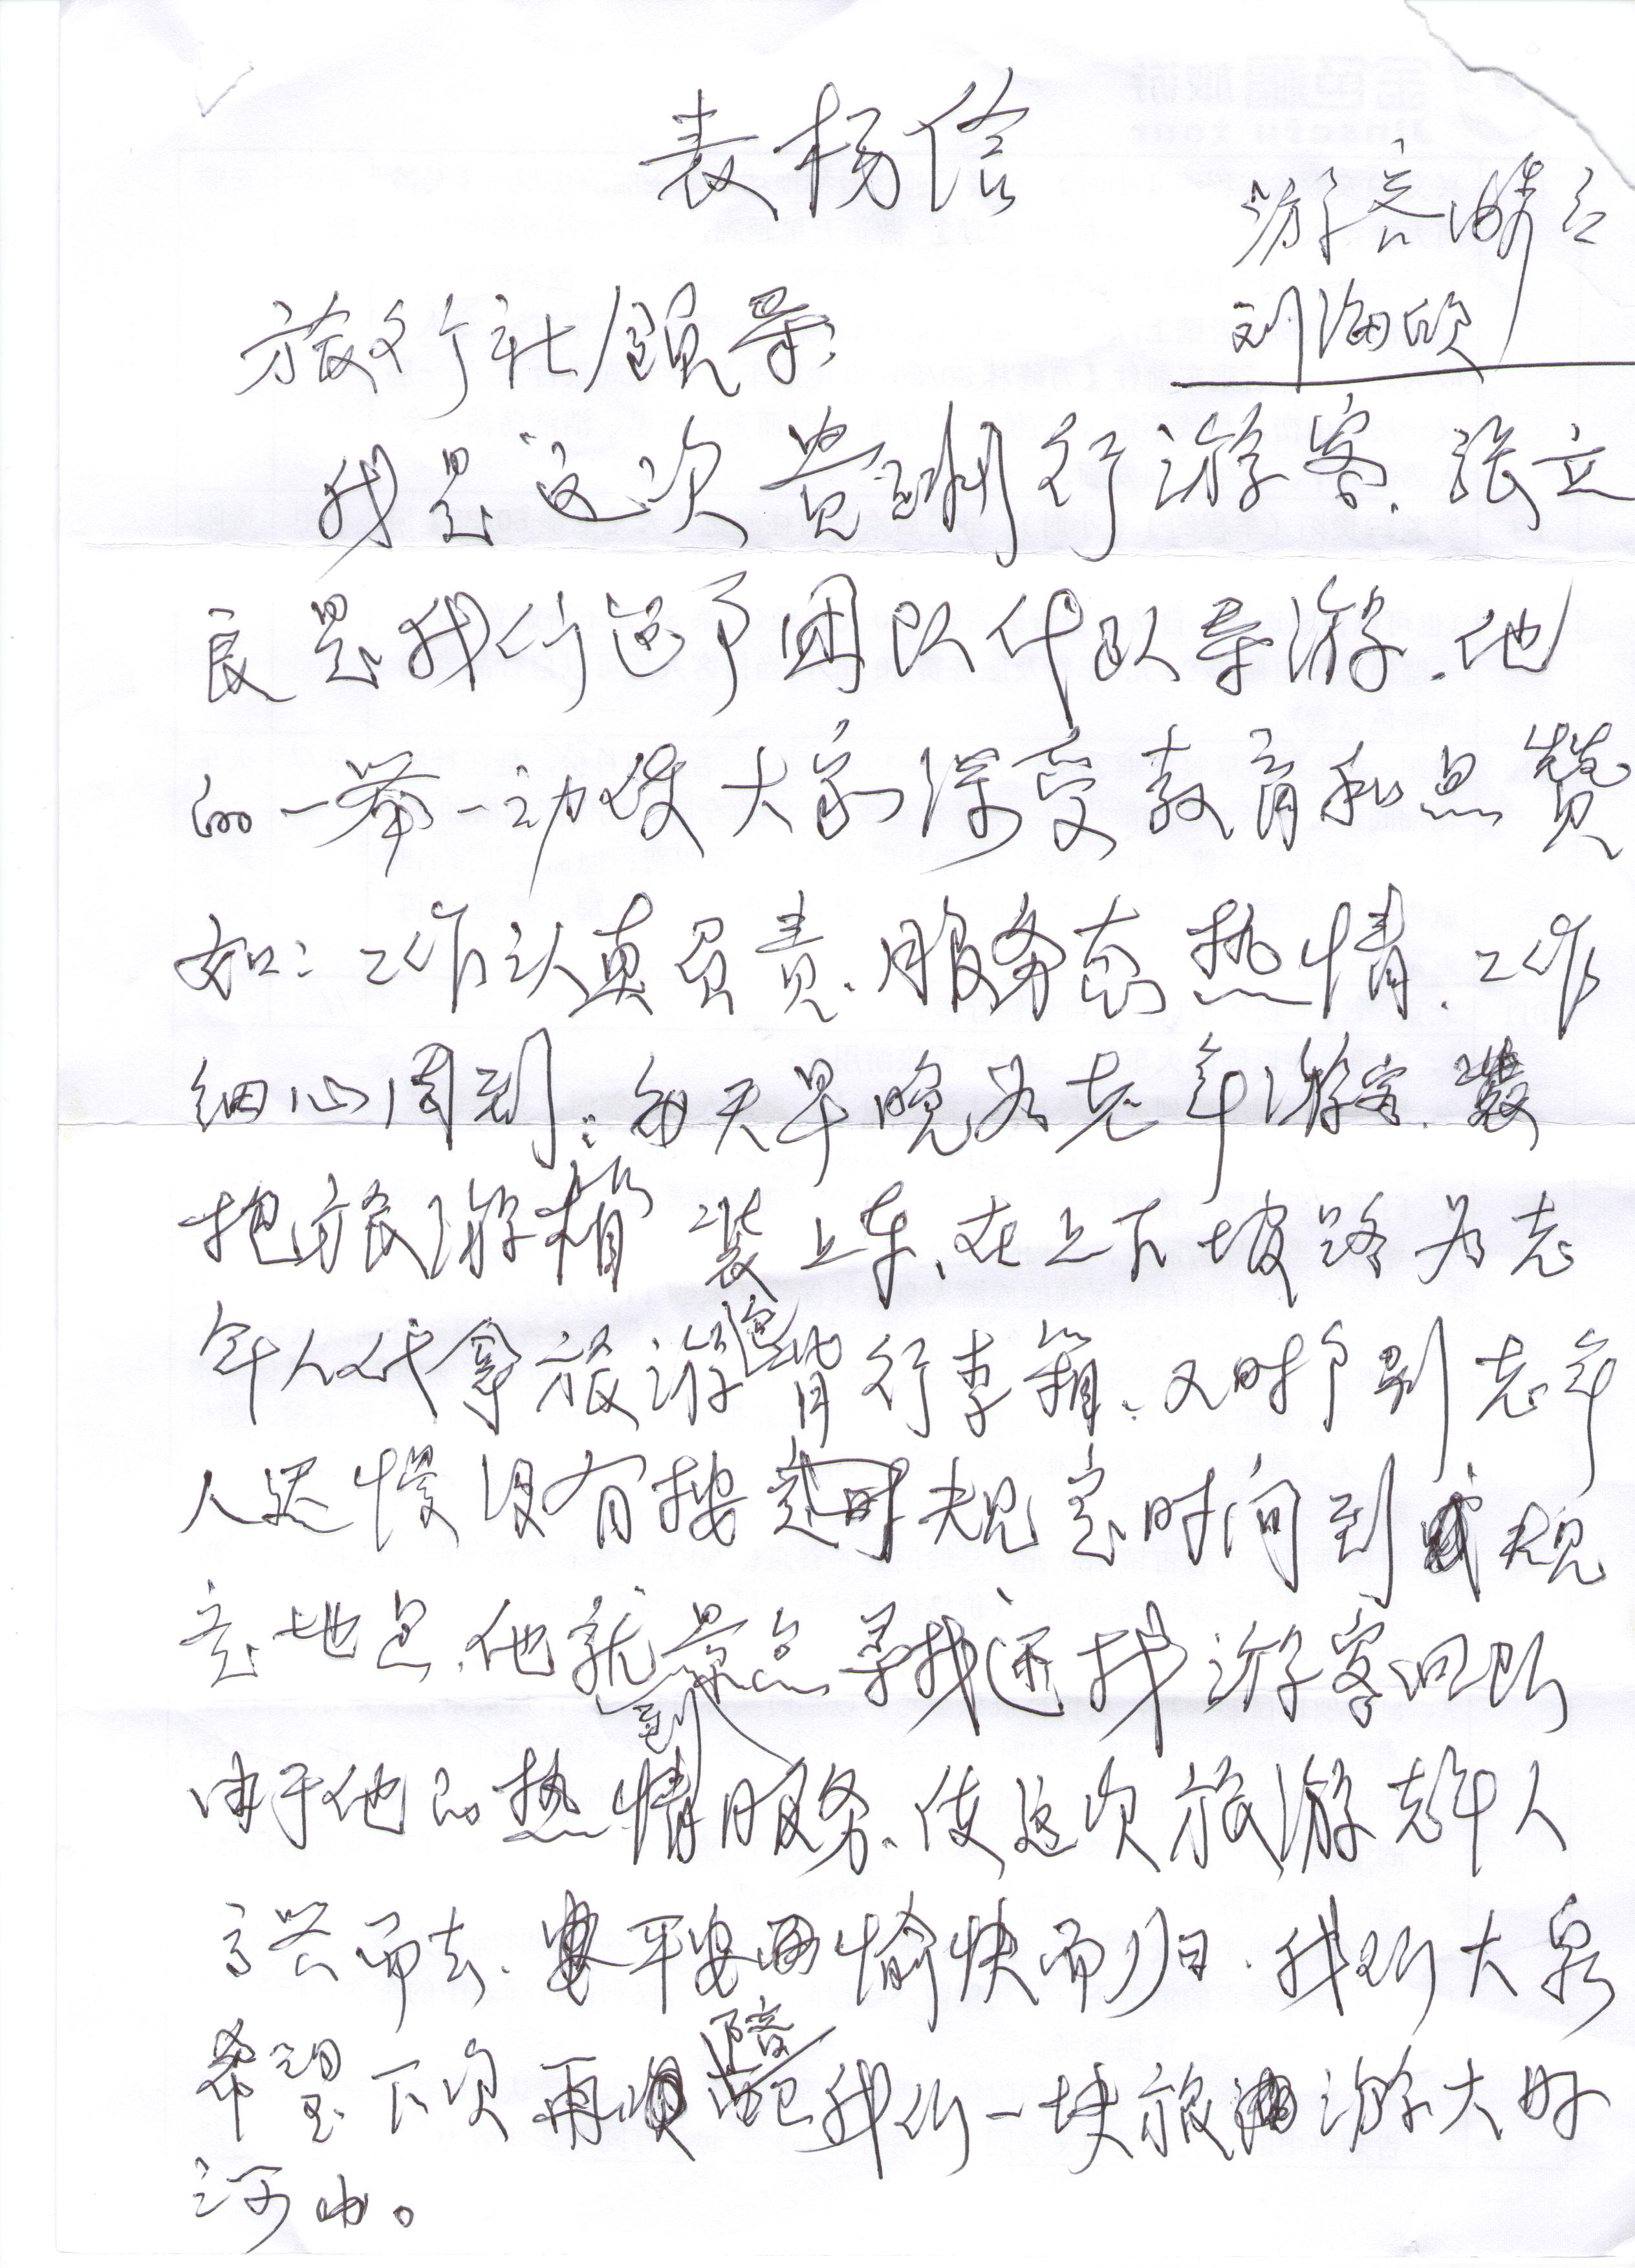 表扬信
游客
刘海欣
旅行社领导
我是这次贵州行游客.张立
良是我们这予团队代队导游.他
的一举一动使大家深受教育和点赞
如:工作认真负责.服务态热情.工作
细心周到:每天早晚为老年游客.
把旅游箱装上车、在上下坡路为老
年人代拿旅游包背行李箱、又时个别老年
人迟慢没有按规定时间到规
定地点.他就到景点寻找还找游客回队
由于他的热情服务、使这次旅游老年人
高兴而去.平安愉快而归.我队大家
希望下次再陪我们一块旅游大好
河山。